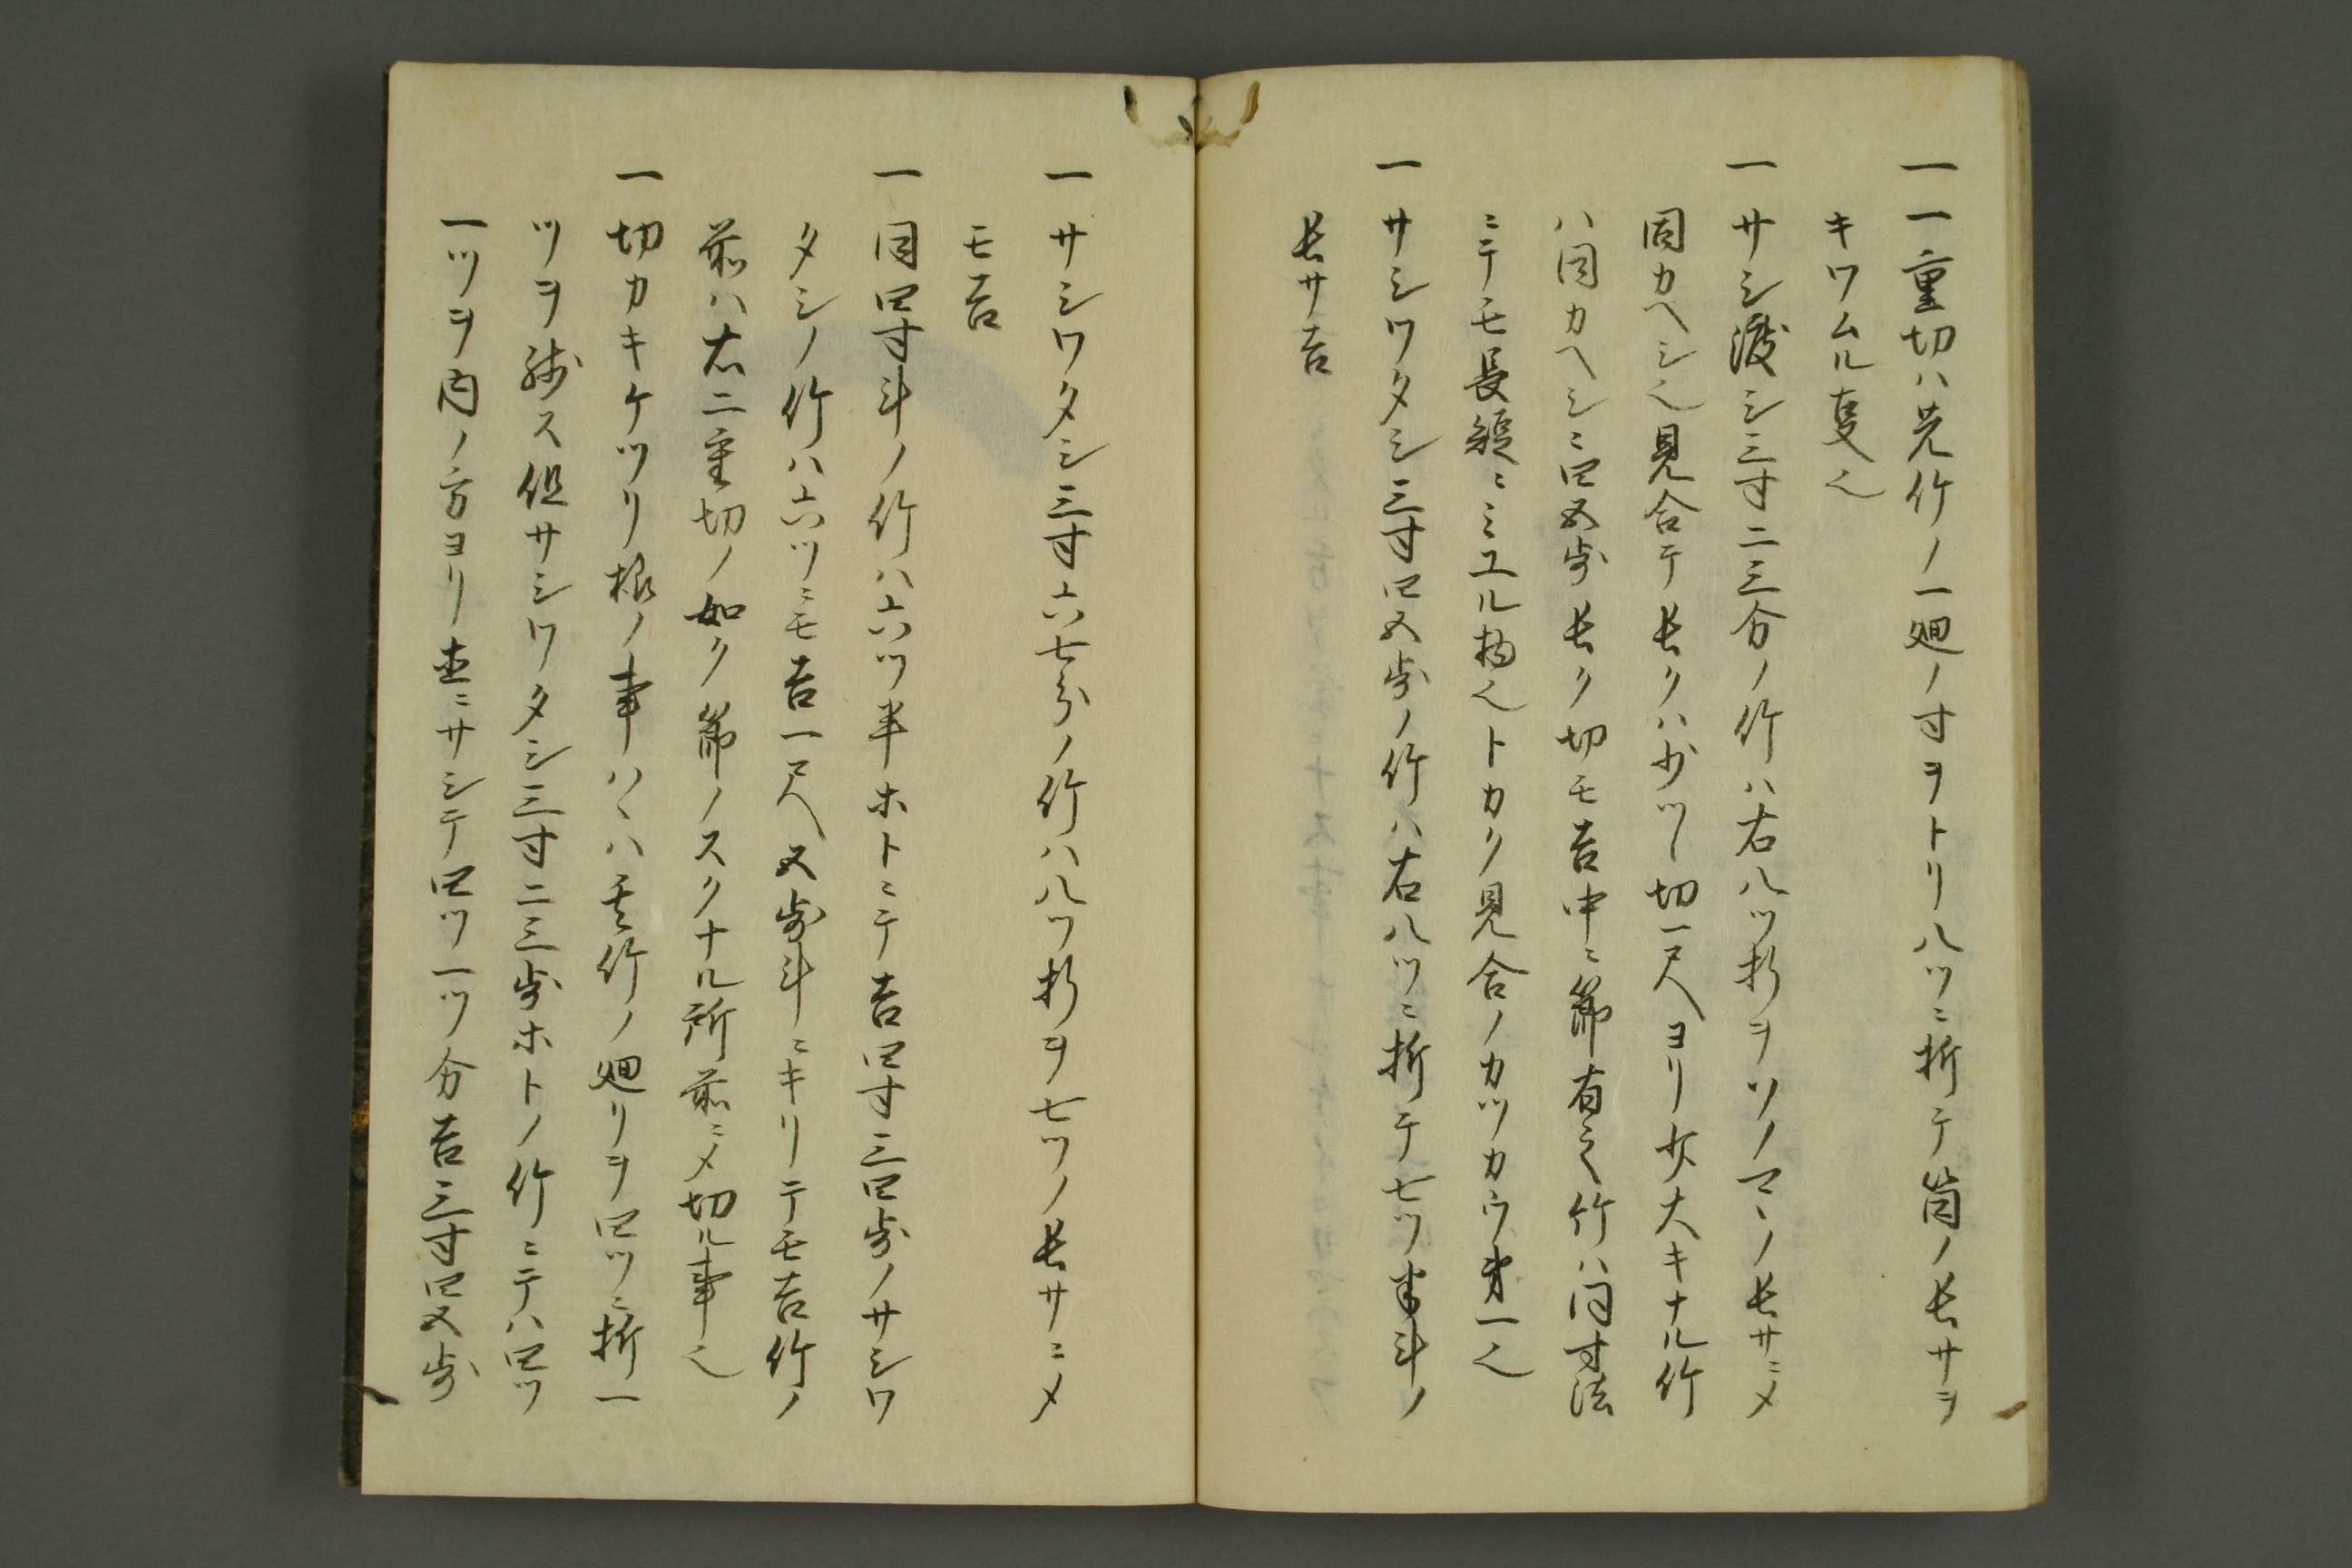 一一重切ハ先竹ノ一廻ノ寸ヲトリ八ツニ折テ筒ノ長サヲ
キワムル㕝也
一サシ渡シ三寸二三分ノ竹ハ右八ツ折ヲソノマヽノ長サニメ
同カヘシ也見合テ長クハ少ツヽ切一尺ヨリ少大キナル竹
ハ同カヘシニ四五歩長ク切モ吉中ニ節有之竹ハ同寸法
ニテモ長短ニミユル物也トカク見合ノカツカウ第一也
一サシワタシ三寸四五歩ノ竹ハ右八ツニ折テ七ツ半斗ノ
長サ吉
一サシワタシ三寸六七分ノ竹ハ八ツ折ヲ七ツノ長サニメ
モ吉
一同四寸斗ノ竹ハ六ツ半ホトニテ吉四寸三四歩ノサシワ
タシノ竹ハ六ツニモ吉一尺五歩斗ニキリテモ吉竹ノ
前ハ右二重切ノ如ク節ノスクナル所前ニメ切ル事也
一切カキケツリ様ノ事ハヽハ其竹ノ廻リヲ四ツニ折一
ツヲ残ス但サシワタシ三寸二三歩ホトノ竹ニテハ四ツ
一ツヲ内ノ方ヨリ直ニサシテ四ツ一ツ分吉三寸四五歩